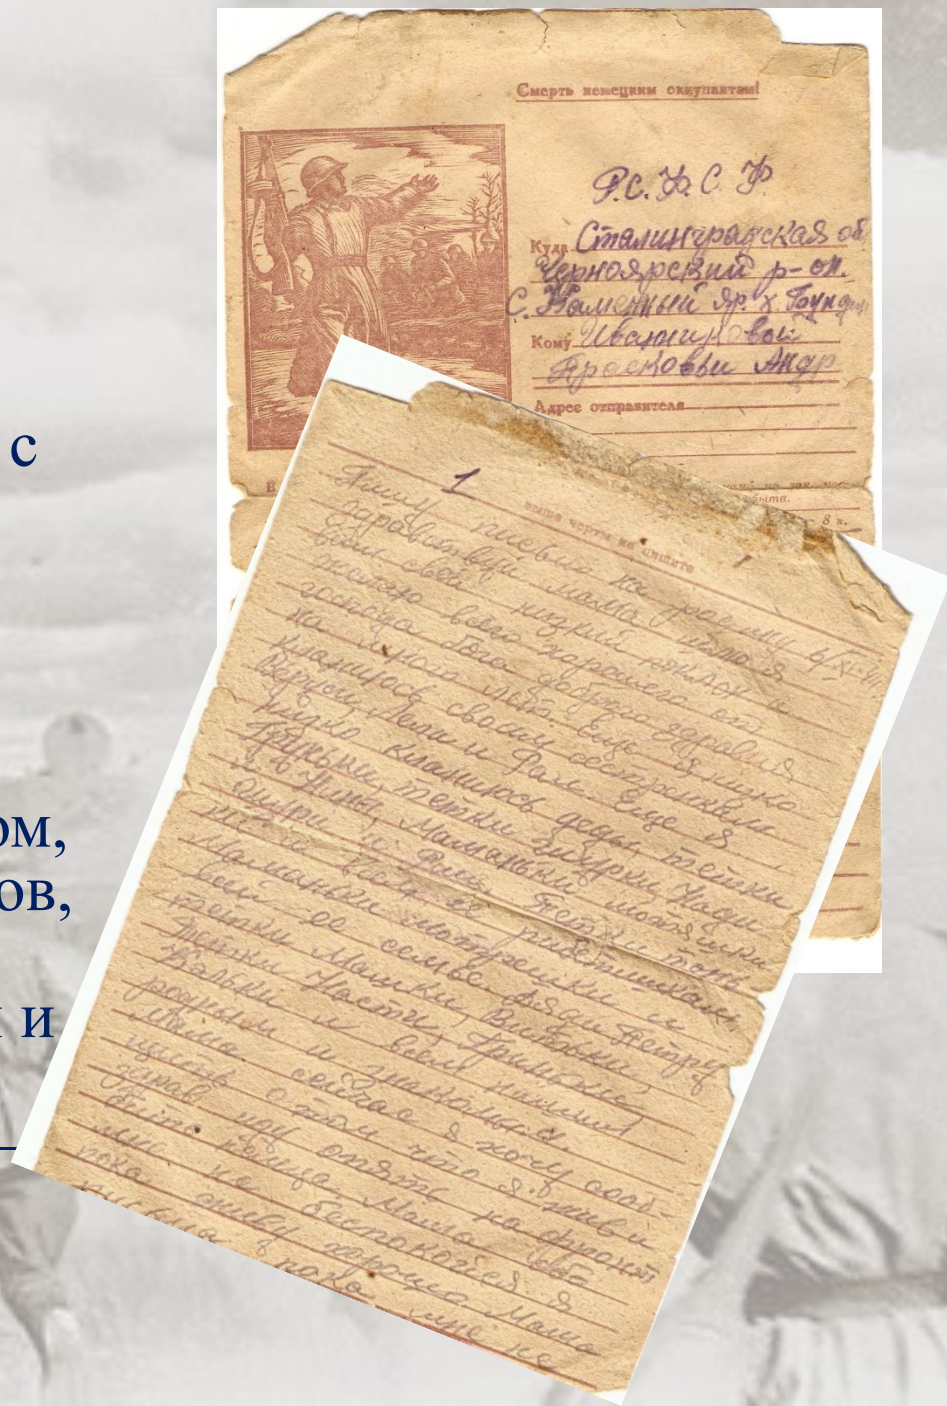 с
ом,
ов,
и
Смерть немецким оккупантам!
Р.С.Ф.С.Р
Куда Сталинградская об
Черноярский р-он.
С. Каменный Яр. х.
Кому
Просковьи Андр
Адрес отправителя
8 к.
1
выше черты не пишите
Пишу письмо на родину 6/XI-
здравствуй мама шлю я
вам свой низкий поклон и
желаю всего харошего от
господа бога доброго здравия
на много лет. Еще я низко
кланиюсь своим сестренкам
Веруси, Нели и Рали еще я
низко кланиюсь деды, тетки
тетки Шурки Нади
и Нины, Маманьки мотяшки
и тетки
маманьки матрешки и
всей ее семье. дяди Петру
тетки Машки Витьки,
тетки Насти,
Кольки и всем нашим
родным и знакомым.
Мама сейчас я хочу сооб-
щить о том что я жив и
здрав опять на фронт
бить фрица. Мама обо
мне не беспокойся. я
пока живу харошо Мама
письма пока мне не